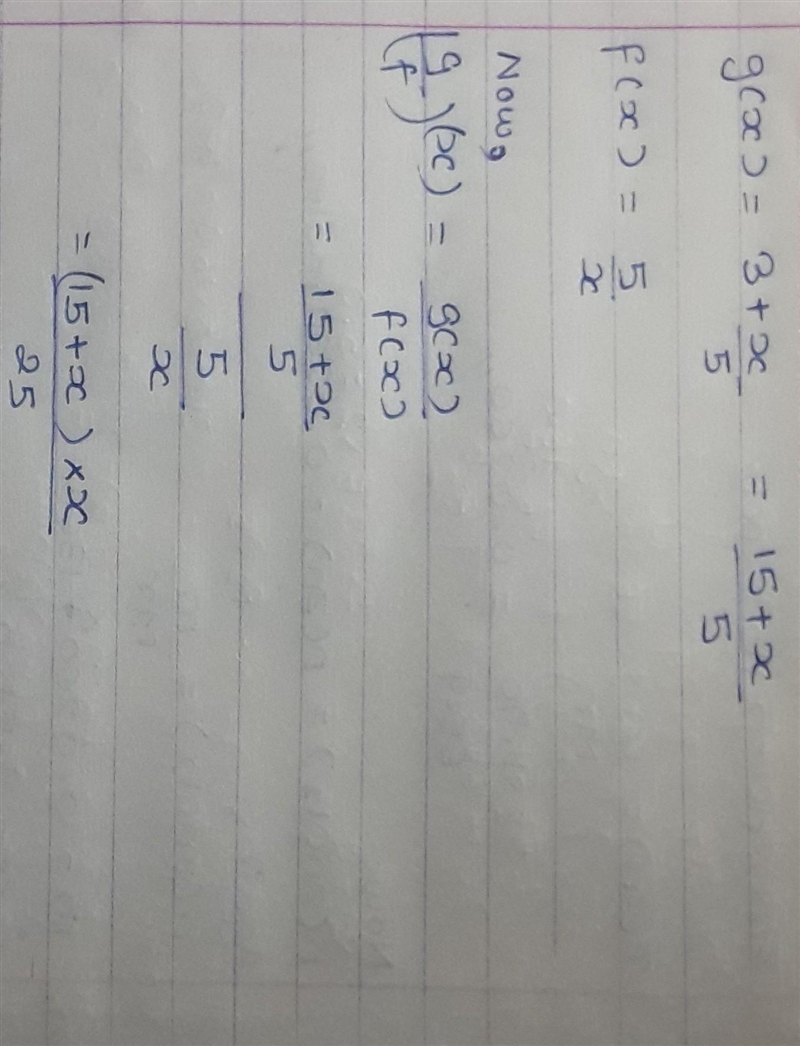 g(x) = 3 + x/5 = (15+x)/5
f(x) = 5/x
Now,
(g/f)(x) = g(x)/f(x)
= (15+x)/5 / 5/x
= (15+x)×x / 25